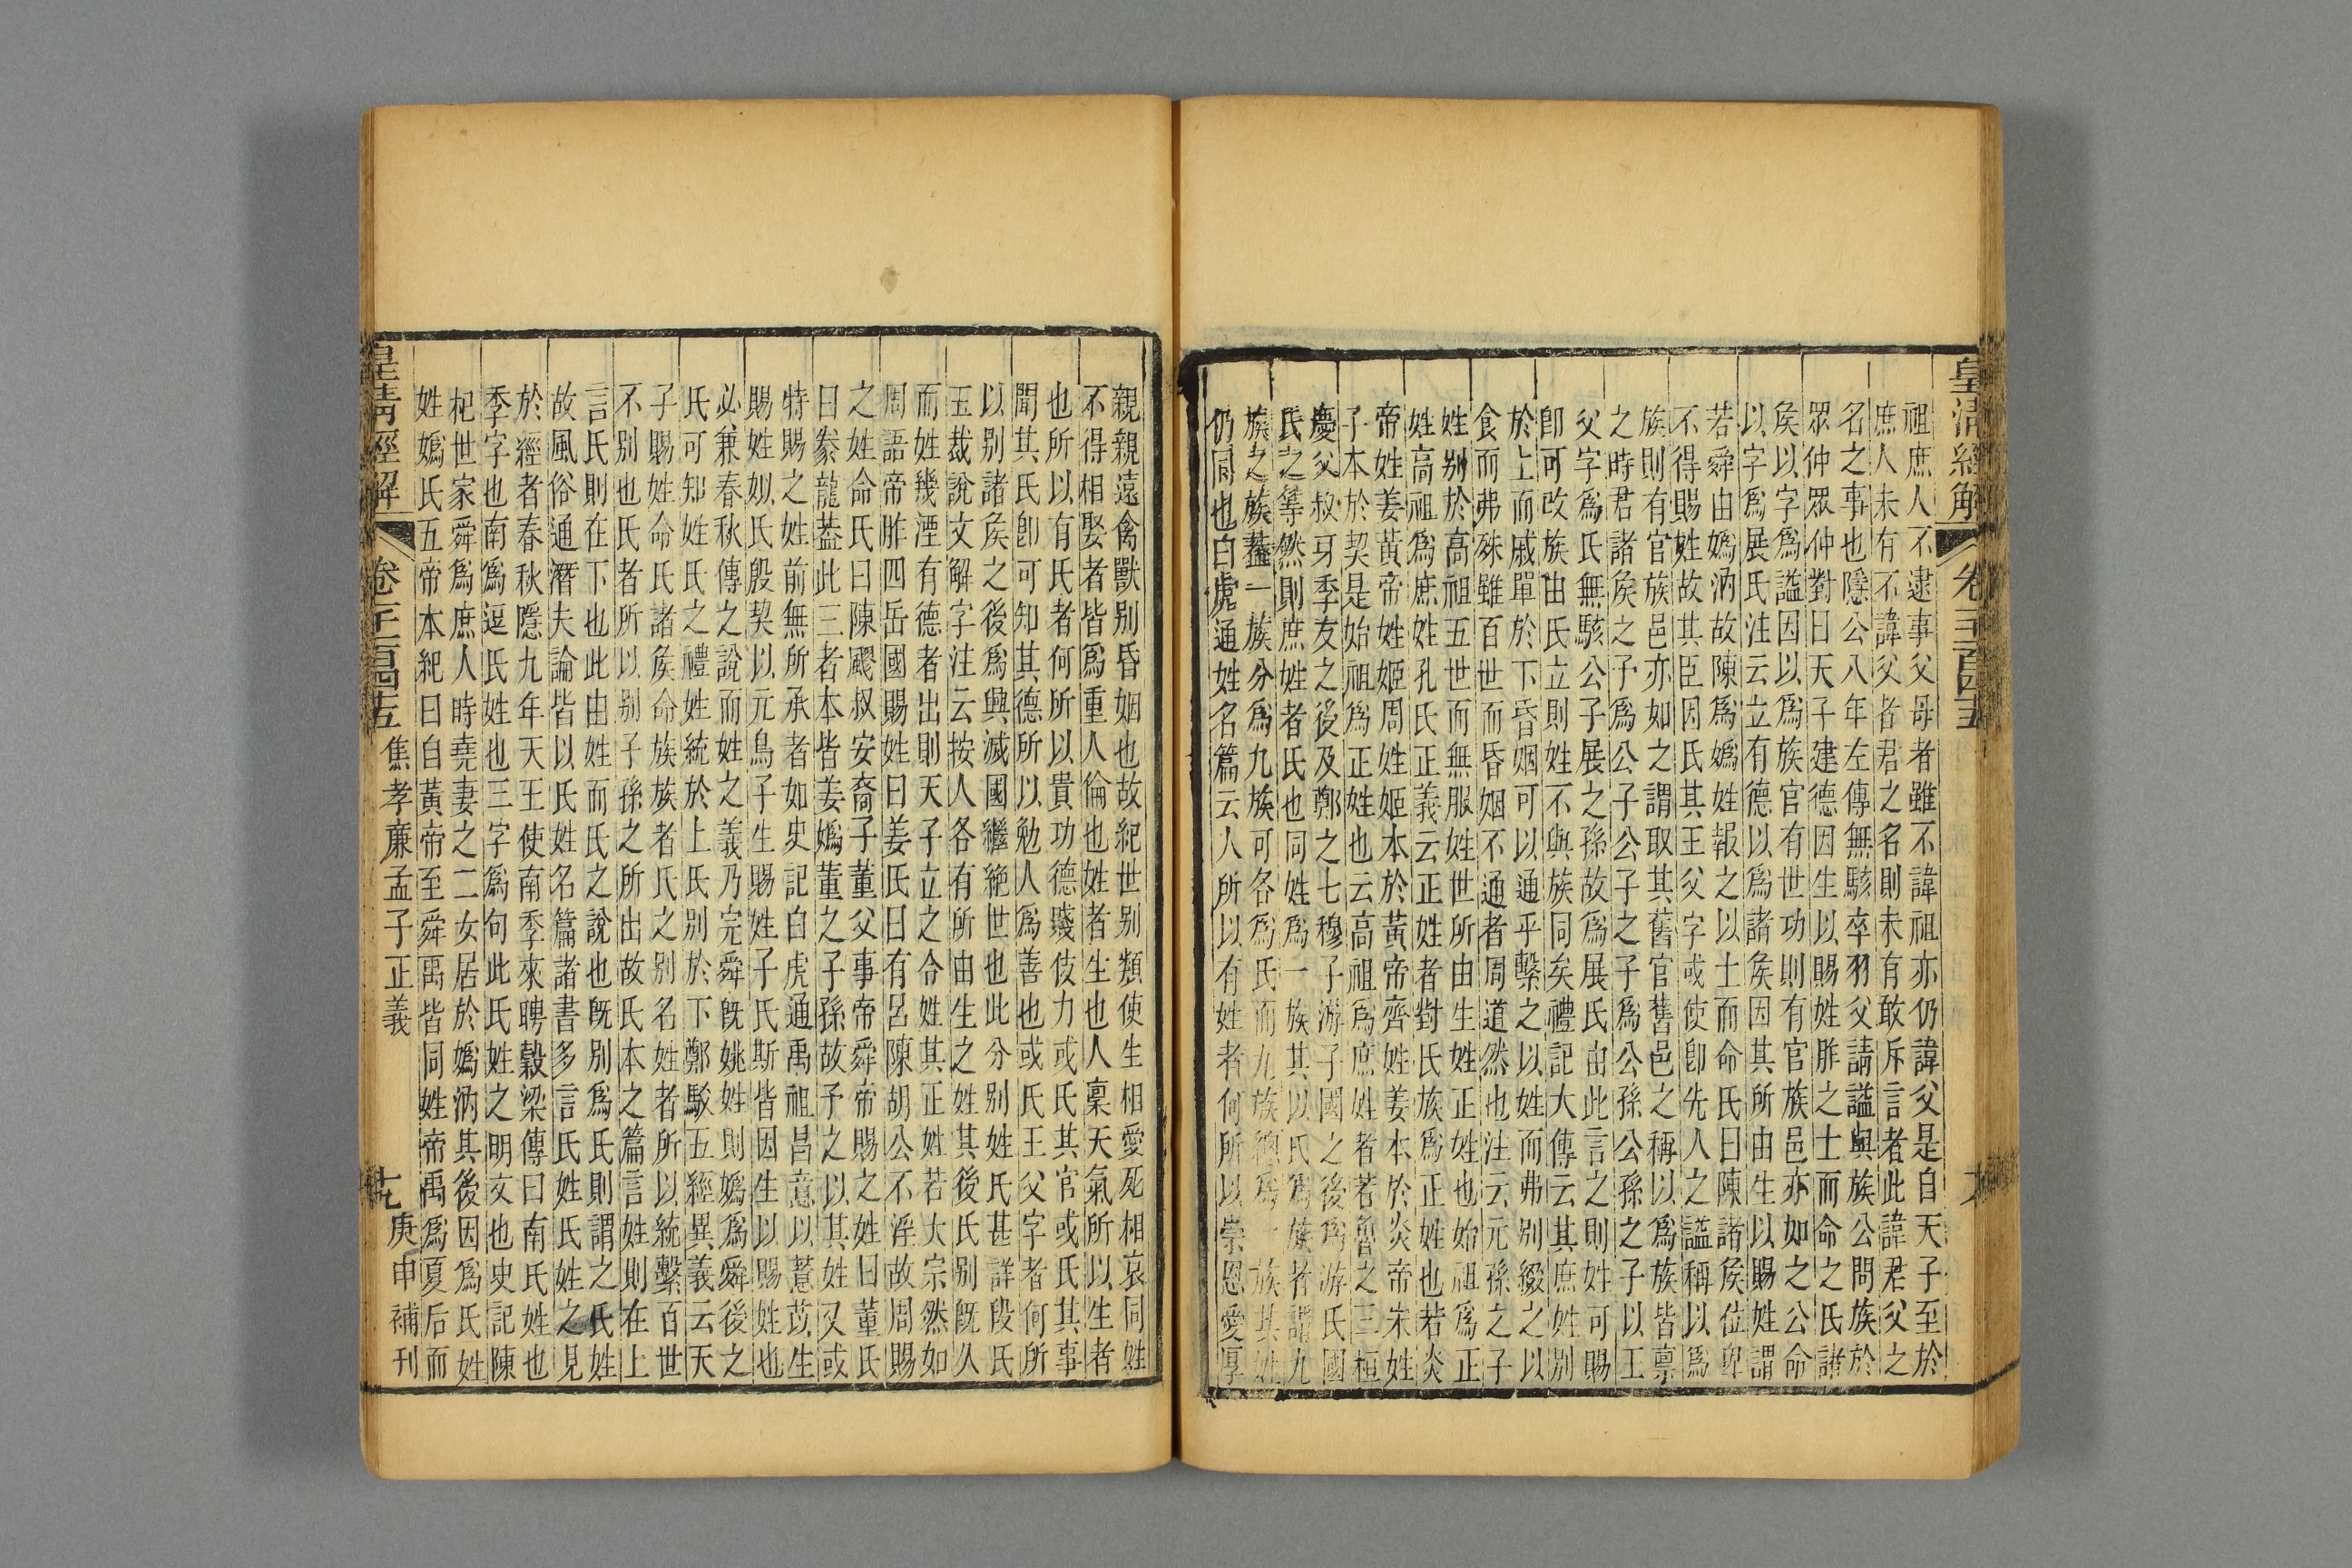 皇清經解 卷千一百四十五
祖庶人不逮事父母者雖不諱祖亦仍諱父是自天子至於
庶人未有不諱父者君之名則未有敢斥言者此諱君父之
名之事也隱公八年左傳無駭卒羽父請謚與族公問族於
眾仲眾仲對曰天子建德因生以賜姓胙之士而命之氏諸
矦以字爲謚因以爲族官有世功則有官族邑亦如之公命
以字爲展氏注云立有德以爲諸矦因其所由生以賜姓謂
若舜由嬀汭故陳爲嬀姓報之以士而命氏曰陳諸矦位卑
不得賜姓故其臣因氏其王父字或使卽先人之謚稱以爲
族則有官族邑亦如之謂取其舊官舊邑之稱以爲族皆禀
之時君諸矦之子爲公子公子之子爲公孫公孫之子以王
父字爲氏無駭公子展之孫故爲展氏由此言之則姓可賜
卽可改族由氏立則姓不與族同矣禮記大傳云其庶姓別
於上而戚單於下昏姻可以通乎繫之以姓而弗別綴之以
食而弗殊雖百世而昏姻不通者周道然也注云元孫之子
姓別於高祖五世而無服姓世所由生姓正姓也始祖爲正
姓高祖爲庶姓孔氏正義云正姓者對氏族爲正姓也若炎
帝姓姜黃帝姓姬周姓姬本於黃帝齊姓姜本於炎帝宋姓
子本於契是始祖爲正姓也云高祖爲庶姓者若魯之三桓
慶父叔牙季友之後及鄭之七穆子游子國之後爲游氏國
氏之等然則庶姓者氏也同姓爲一族其以氏爲族者謂九
族之族葢一族分爲九族可各爲氏而九族總爲一族其姓
仍同也白虎通姓名篇云人所以有姓者何所以崇恩愛厚
親親遠禽獸別昏姻也故紀世別類使生相愛死相哀同姓
不得相娶者皆爲重人倫也姓者生也人稟天氣所以生者
也所以有氏者何所以貴功德賤伎力或氏其官或氏其事
聞其氏卽可知其德所以勉人爲善也或氏王父字者何所
以別諸矦之後爲興滅國繼絕世也此分別姓氏甚詳段氏
玉裁說文解字注云按人各有所由生之姓其後氏別旣久
而姓幾湮有德者出則天子立之令姓其正姓若大宗然如
周語帝胙四岳國賜姓曰姜氏曰有呂陳胡公不淫故周賜
之姓命氏曰陳飂叔安裔子董父事帝舜帝賜之姓曰董氏
曰豢龍葢此三者本皆姜嬀董之子孫故予之以其姓又或
特賜之姓前無所承者如史記白虎通禹祖昌意以薏苡生
賜姓姒氏殷契以元鳥子生賜姓子氏斯皆因生以賜姓也
必兼春秋傳之說而姓之義乃完舜旣姚姓則嬀爲舜後之
氏可知姓氏之禮姓統於上氏別於下鄭駮五經異義云天
子賜姓命氏諸矦命族族者氏之別名姓者所以統繫百世
不別也氏者所以別子孫之所出故氏本之篇言姓則在上
言氏則在下也此由姓而氏之說也旣別爲氏則謂之氏姓
故風俗通潛夫論皆以氏姓名篇諸書多言氏姓氏姓之見
於經者春秋隱九年天王使南季來聘穀梁傳曰南氏姓也
季字也南爲逗氏姓也三字爲句此氏姓之明文也史記陳
杞世家舜爲庶人時堯妻之二女居於嬀汭其後因爲氏姓
姓嬀氏五帝本紀曰自黃帝至舜禹皆同姓帝禹爲夏后而
皇清經解 卷千一百四十五 焦孝廉孟子正義 十九 庚申補刊